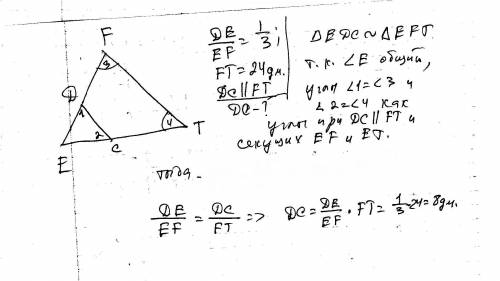 F
3
D
1
2
4
E
C
T
DE/EF = 1/3;
FT = 24дм.
DC || FT
DC - ?
ΔEDC ~ ΔEFT.
т.к. ∠E общий,
угол ∠1=∠3 и
∠2=∠4 как
углы при DC || FT и
секущих EF и ET.
тогда
DE/EF = DC/FT => DC = DE/EF · FT = 1/3 · 24 = 8дм.